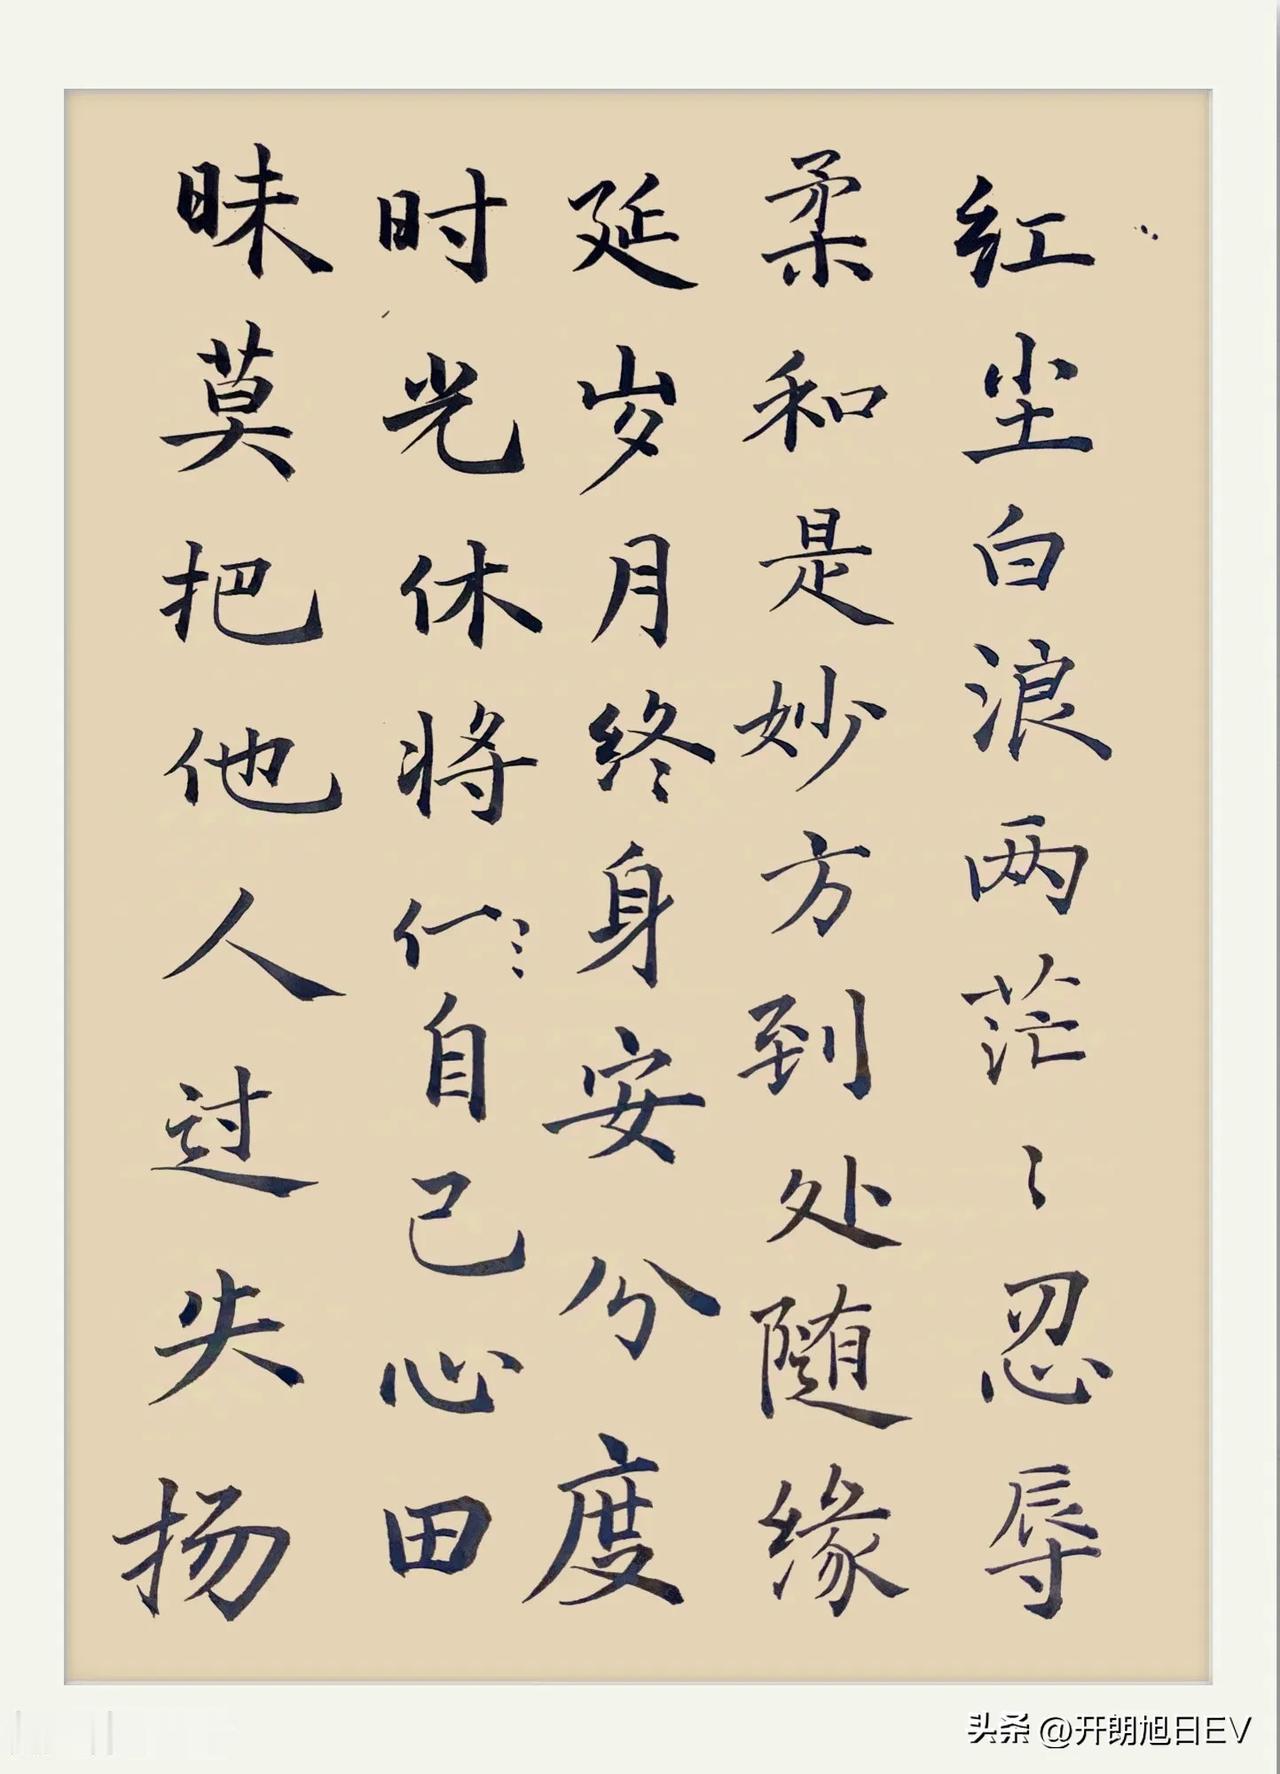 红尘白浪两茫〻忍辱
柔和是妙方到处随缘
延岁月终身安分度
时光休将自己心田
昧莫把他人过失扬
头条 @开朗旭日EV